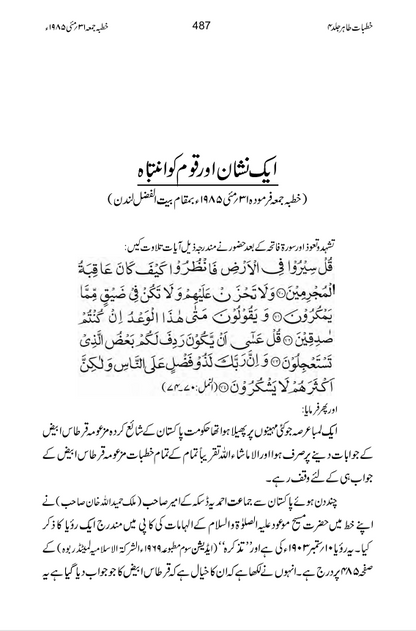 خطبات طاہر جلد ۴ 487 خطبہ جمعہ ۳۱؍مئی ۱۹۸۵ء
ایک نشان اور قوم کو انتباہ
(خطبہ جمعہ فرمودہ ۳۱؍مئی ۱۹۸۵ء بمقام بیت الفضل لندن)
تشہد و تعوذ اور سورۃ فاتحہ کے بعد حضور نے مندرجہ ذیل آیات تلاوت کیں:
قُلْ سِيْرُوْا فِى الْاَرْضِ فَانْظُرُوْا كَيْفَ كَانَ عَاقِبَةُ
الْمُجْرِمِيْنَ۝ وَلَا تَحْزَنْ عَلَيْهِمْ وَلَا تَكُنْ فِىْ ضَيْقٍ مِّمَّا
يَمْكُرُوْنَ۝ وَ يَقُوْلُوْنَ مَتٰى هٰذَا الْوَعْدُ اِنْ كُنْتُمْ
صٰدِقِيْنَ۝ قُلْ عَسٰٓى اَنْ يَّكُوْنَ رَدِفَ لَكُمْ بَعْضُ الَّذِىْ
تَسْتَعْجِلُوْنَ۝ وَ اِنَّ رَبَّكَ لَذُوْ فَضْلٍ عَلَى النَّاسِ وَلٰكِنَّ
اَكْثَرَهُمْ لَا يَشْكُرُوْنَ۝ (النمل: ۷۰۔۷۴)
اور پھر فرمایا:
ایک لمبا عرصہ جو کئی مہینوں پر پھیلا ہوا تھا حکومت پاکستان کے شائع کردہ مزعومہ قرطاس ابیض
کے جوابات دینے پر صرف ہوا اور الا ماشاء اللہ تقریباً تمام کے تمام خطبات مزعومہ قرطاس ابیض کے
جواب ہی کے لئے وقف رہے۔
چند دن ہوئے پاکستان سے جماعت احمدیہ ڈسکہ کے امیر صاحب (ملک حمید اللہ خان صاحب) نے
اپنے خط میں حضرت مسیح موعود علیہ الصلوٰۃ والسلام کے الہامات کی کاپی میں مندرج ایک رؤیا کا ذکر
کیا۔ یہ رؤیا ۱۰؍ستمبر ۱۹۰۳ء کی ہے اور ’’تذکرہ‘‘ (ایڈیشن سوم مطبوعہ ۱۹۶۹ء الشرکۃ الاسلامیہ لمیٹڈ ربوہ) کے
صفحہ ۴۸۵ پر درج ہے۔ انہوں نے لکھا ہے کہ ان کا خیال ہے کہ قرطاس ابیض کا جو جواب دیا گیا ہے یہ